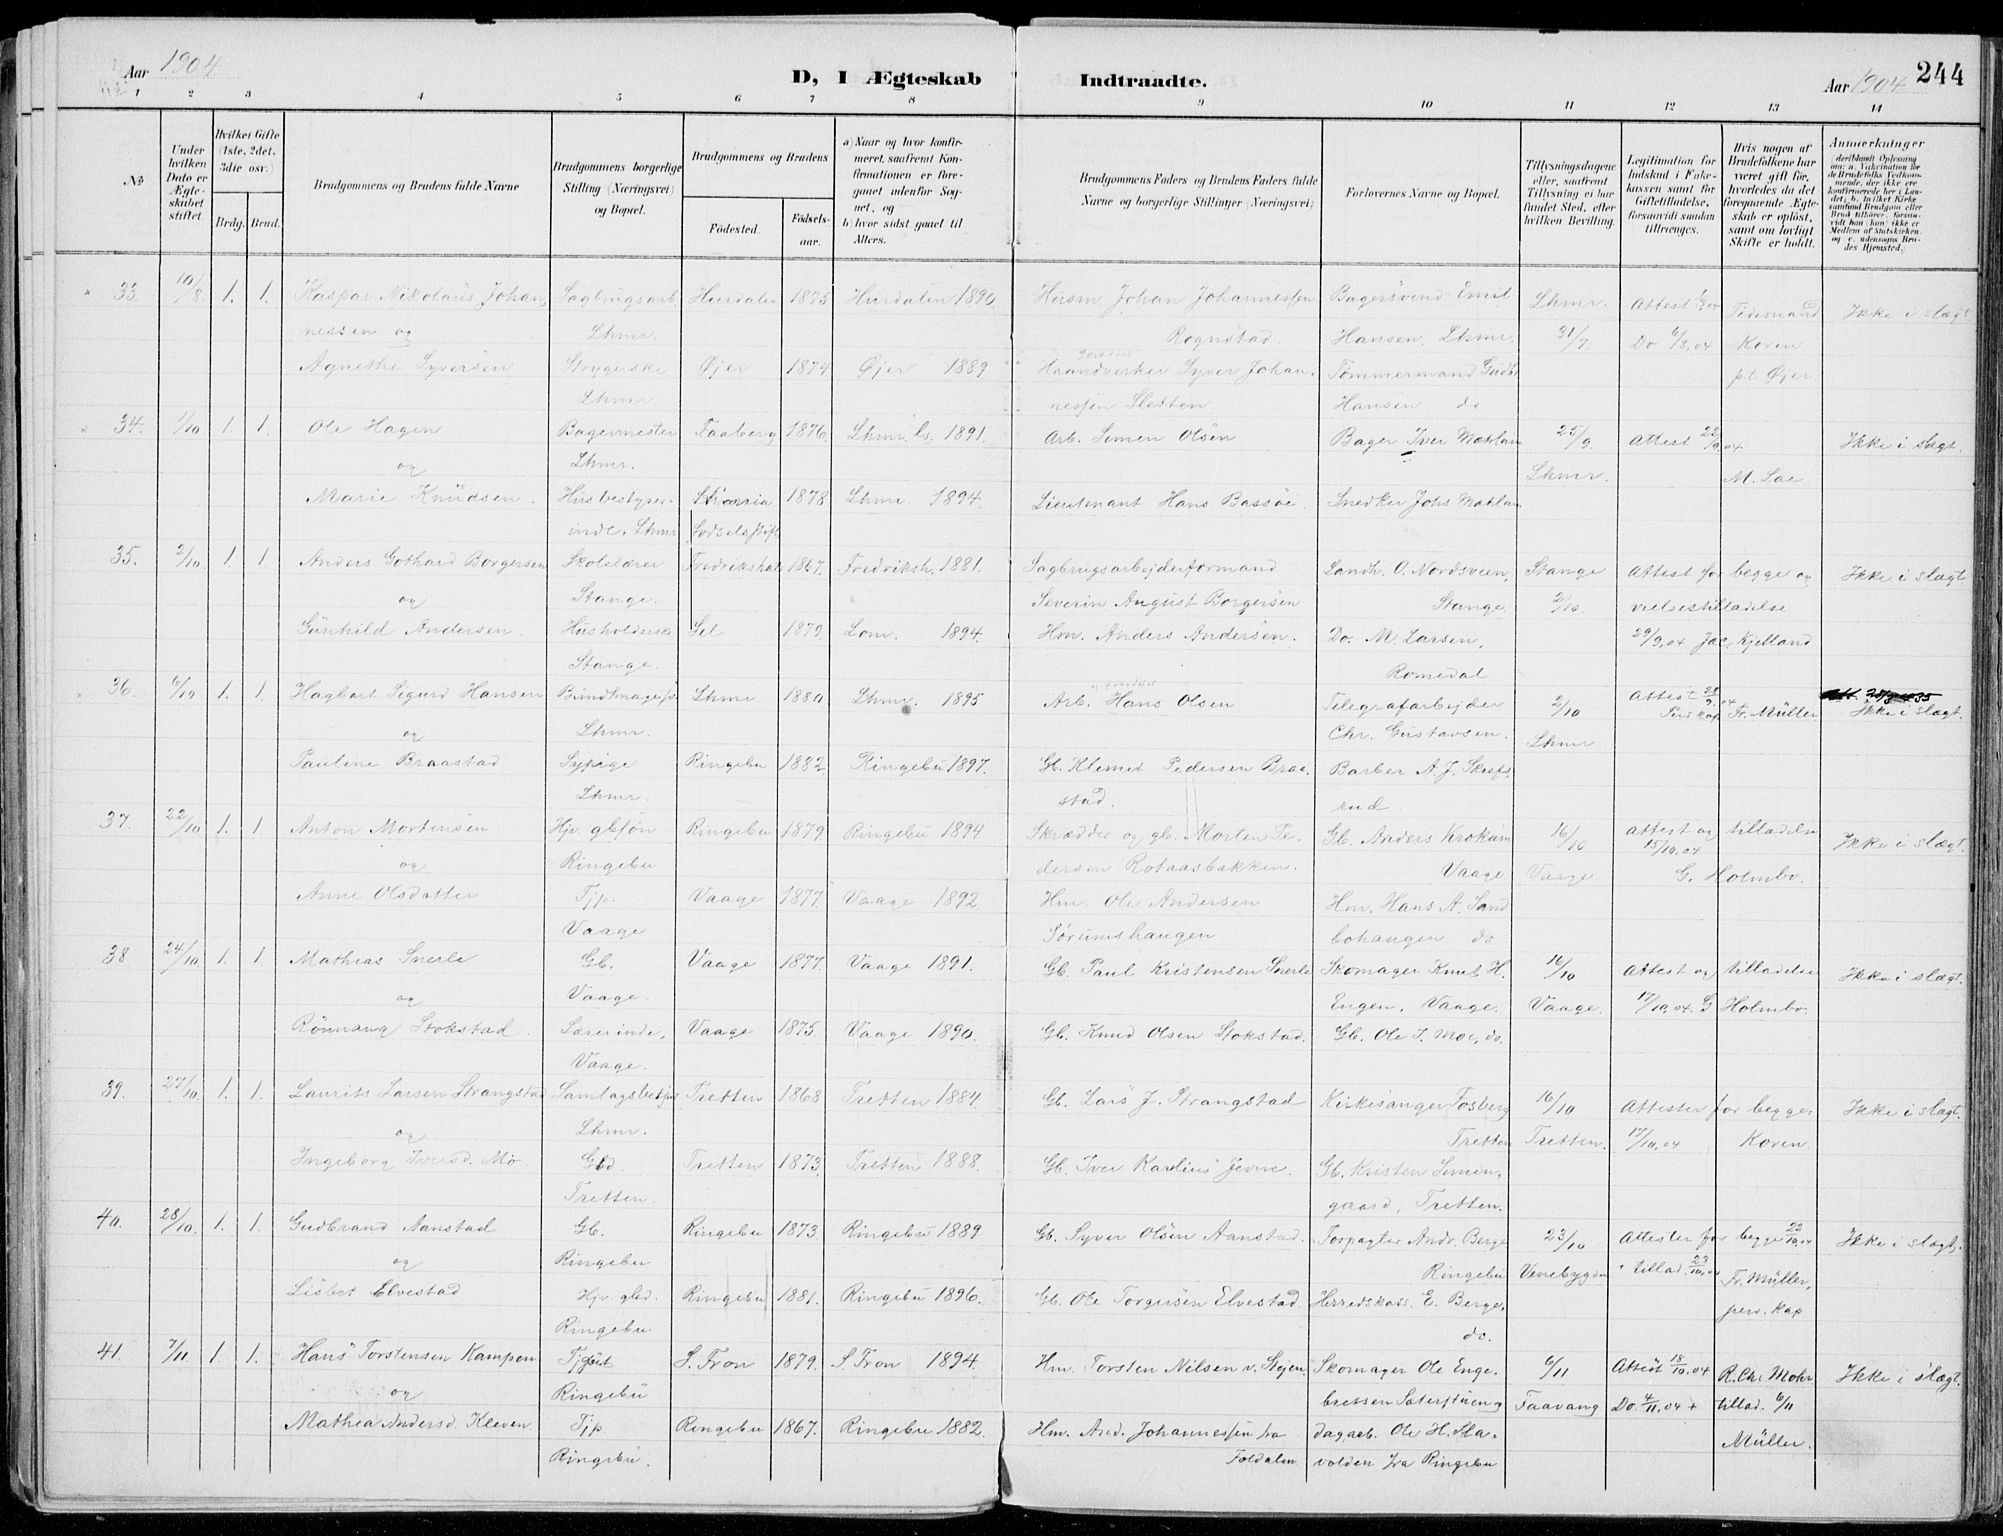 Aar 1904
D, I Ægteskab Indtraadte.
Aar 1904
244
1 2 3 4 5 6 7 8 9 10 11 12 13 14
№
Under hvilken Dato er Ægteskabet stiftet.
Hvilket Gifte (1ste, 2det, 3die osv.)
Brdg. Brud.
Brudgommens og Brudens fulde Navne
Brudgommens borgerlige Stilling (Næringsvei) og Bopæl.
Brudgommens og Brudens
Fødested.
Fødselsaar.
a) Naar og hvor konfirmeret, saafremt Konfirmationen er foregaaet udenfor Sognet, og
b) hvor sidst gaaet til Alters.
Brudgommens Faders og Brudens Faders fulde Navne og borgerlige Stillinger (Næringsvei)
Forlovernes Navne og Bopæl.
Tillysningsdagene eller, saafremt Tillysning ei har fundet Sted, efter hvilken Bevilling.
Legitimation for Indskud i Enkekassen samt for Giftetilladelse, forsaavidt saadan tiltrænges.
Hvis nogen af Brudefolkene har været gift før, hvorledes da det foregaaende Ægteskab er opløst, samt om lovligt Skifte er holdt.
Anmerkninger
33. 10/8 1. 1. Kaspar Nikolaus Johan Sagbrugsarb. Hurdalen 1875 Hurdalen 1890. Husm Johan Johannessen Bagersvend Emil Lhmr. Attest Tidemand Ikke i slægt
nessen og Lhmr. Rognstad. Hansen, Lhmr. 31/7 Do 6/8.04 Koren
Agnethe Syversen Strygerske Øjer 1874 Øjer 1889 Haandverker Syver Johan- Tømmermand Gudb. p.t Øjer
Lhmr. nessen Sletten. Hansen do
34. 1/10 1. 1. Ole Hagen Bagermester Faaberg 1876. Lhmr. 1891. Arb. Simen Olsen Bager Iver Mæhlum 25/9 Attest 22/9.04 Ikke i slægt.
og Lhmr. Lhmr. M. Loe
Marie Knudsen. Husbestyrer- 1878 Lhmr. 1894. Lieutenant Hans Bassøe. Snedker Johs Mæhlum
inde. Lhmr Fødselsstift
35. 2/10 1. 1. Anders Gothard Borgersen Skolelærer Fredrikshald 1867. Fredriksh. 1881. Sagbrugsarbejderformand Landh. O. Nordsveen, Stange Attest for begge og Ikke i slægt
og Stange. Severin August Borgersen Stange. 2/10. vielsestilladelse
Gunhild Andersen. Husholderske Sel 1879. Lom. 1894. Hm. Anders Andersen. Do. M. Larsen, 29/9.04 Jac. Kjelland
Stange. Romedal
36. 6/10 1. 1. Hagbart Sigurd Hansen Bundtmager Lhmr 1880 Lhmr. 1895 Arb. Hans Olsen Telegrafarbejder 2/10 Attest 28/9.04 Fr. Müller Ikke i slægt.
og Lhmr. Chr. Gustavsen. Lhmr Pers kap
Pauline Braastad Sypige Ringebu 1882 Ringebu 1897. Gb. Klemet Pedersen Braa- Barber A. J. Skrefs
Lhmr. stad. rud.
37. 22/10 1. 1. Anton Mortensen Hjv. gbsøn Ringebu 1879. Ringebu 1894 Skrædder og gb. Morten Pe- Gb. Anders Krokum 16/10 Attest og tilladelse Ikke i slægt.
og Ringebu dersen Rotaasbakken. Vaage Vaage 15/10.04 G. Holmbo.
Anne Olsdatter Tjp. Vaage 1877. Vaage 1892. Hm. Ole Andersen Hm. Hans A. Sand
Vaage. Sørumshaugen. bohaugen do.
38 24/10 1. 1 Mathias Snerle Gb. Vaage 1877. Vaage 1891. Gb. Paul Kristensen Snerle Skomager Knut H. 16/10 Attest og tilladelse Ikke i slægt.
og Vaage. Engen, Vaage. Vaage. 17/10.04. G Holmbo.
Rønnaug Stokstad. Lærerinde, Vaage 1875 Vaage 1890. Gb. Knud Olsen Stokstad. Gb. Ole S. Moe, do.
Vaage.
39. 27/10. 1. 1. Laurits Larsen Strangstad Samlagsbestyr Tretten 1868 Tretten 1884. Gb. Lars J. Strangstad Kirkesanger Fosberg 16/10 Attester for begge Ikke i slægt.
og Lhmr. Tretten Tretten. 17/10.04 Koren.
Ingeborg Iversd. Mo Gbd Tretten 1873 Tretten 1888. Gb. Iver Karelius Jevne. Gb. Kristen Simen-
Tretten. gaard, Tretten.
40. 28/10. 1. 1. Gudbrand Aanstad Gb. Ringebu 1873. Ringebu 1889 Gb. Syver Olsen Aanstad. Forpagter Andr. Berge 23/10 Attester for begge 22/10.04 Ikke i slægt.
og Ringebu Ringebu Venebygden tillad. 23/10.04 Fr. Müller,
Lisbet Elvestad Hjv. gbd. Ringebu 1881. Ringebu 1896. Gb. Ole Torgersen Elvestad. Herredskass. E. Berge, pers. kap
Ringebu do.
41 7/11 1. 1. Hans Torstensen Kampen Tjgut S. Fron 1879. S. Fron 1894. Hm. Torsten Nilsen v. Stejen. Skomager Ole Enge- 6/11 Attest 18/10.04 R. Chr. Mohr Ikke i slægt.
og Ringebu bretsen Faavang Do. 4/11.04 + tillad. 6/11
Mathea Andersd. Kleven. Tjp. Ringebu 1867. Ringebu 1882. Hm. And. Johannessen fra dagarb. Ole H. Sla- Müller.
Ringebu. Foldalen. volden fra Ringebu